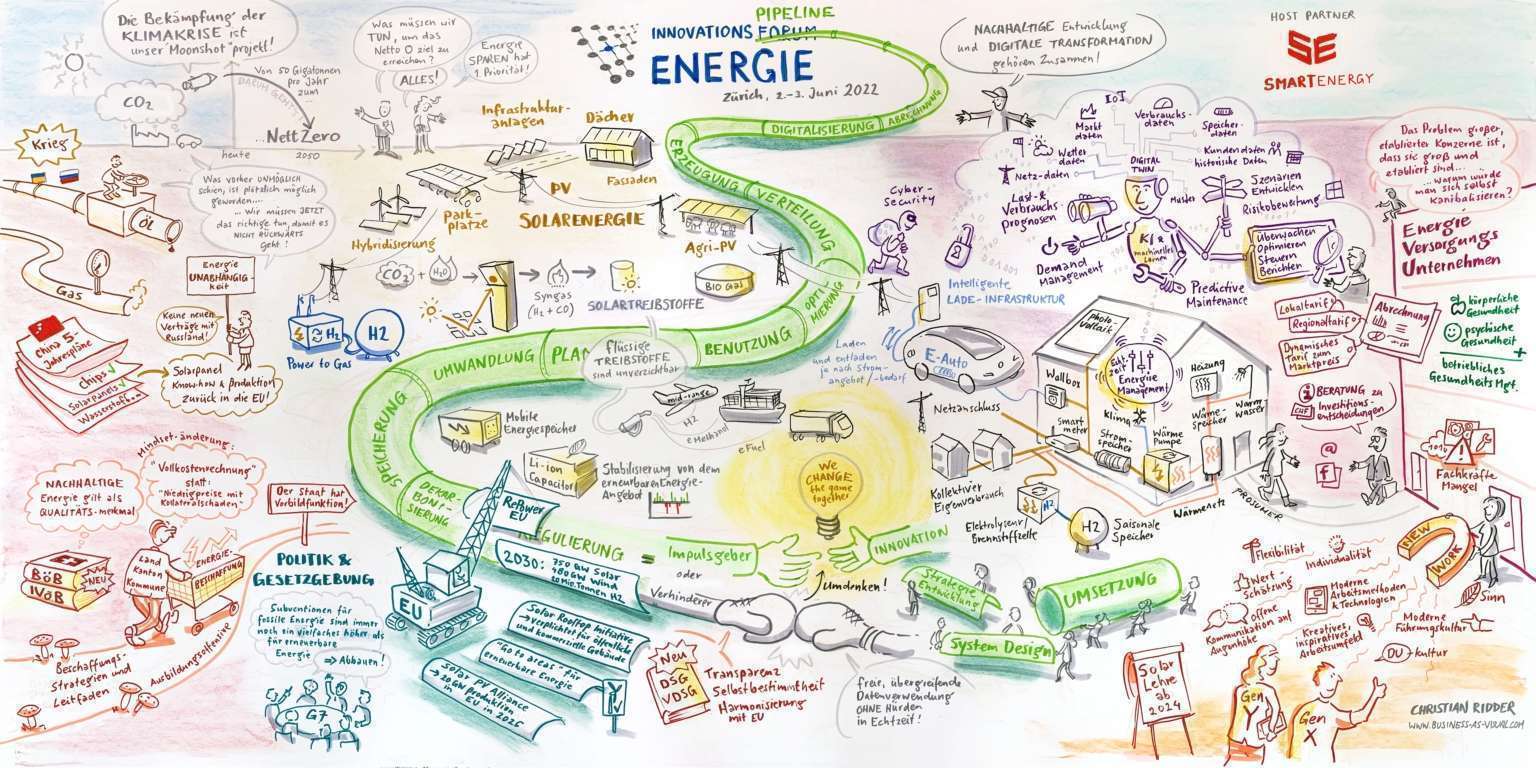 Die Bekämpfung der
KLIMAKRISE ist
unser Moonshot projekt!
CO₂
Von 50 Gigatonnen
pro Jahr
zum...
DARUM GEHT'S
...Nett Zero
heute
2050
Was müssen wir
TUN, um das
Netto 0 ziel zu
erreichen?
ALLES!
Energie
SPAREN hat
1. Priorität!
PIPELINE
INNOVATIONS FORUM
ENERGIE
Zürich, 2.-3. Juni 2022
NACHHALTIGE Entwicklung
und DIGITALE TRANSFORMATION
gehören zusammen!
HOST PARTNER
SE
SMARTENERGY
Krieg
Öl
Gas
Was vorher UNMÖGLICH
schien, ist plötzlich möglich
geworden...
... Wir müssen JETZT
das richtige tun, damit es
NICHT RÜCKWÄRTS
geht!
Energie
UNABHÄNGIG-
KEIT
Keine neuen
Verträge mit
Russland!
China 5-
Jahrespläne
Chips ✓
Solarpanels ✓
Wasserstoff...
Solarpanel
Know-how & produktion
zurück in die EU!
Infrastruktur-
anlagen
Dächer
Fassaden
PV
SOLARENERGIE
Park-
plätze
Agri-PV
Hybridisierung
CO₂ + H₂O
Syngas
(H₂ + CO)
SOLARTREIBSTOFFE
BIO Gas
H₂
H2
Power to Gas
ABRECHNUNG
DIGITALISIERUNG
ERZEUGUNG
VERTEILUNG
OPTI-
MIERUNG
BENUTZUNG
PLAN
UMWANDLUNG
SPEICHERUNG
DEKAR-
BONI-
SIERUNG
REGULIERUNG
flüssige
TREIBSTOFFE
sind unverzichtbar
mid-range
H2
eMethanol
eFuel
Mobile
Energiespeicher
Li-ion
Capacitor
Stabilisierung von dem
erneuerbaren Energie-
Angebot
Cyber-
Security
IoT
Markt
daten
Verbrauchs-
daten
Speicher-
daten
Wetter
daten
Kundendaten
historische Daten
Netz-daten
DIGITAL
TWIN
Last- &
Verbrauchs-
prognosen
Muster
Szenarien
Entwickeln
Risikobewertung
KI &
machinelles
Lernen
Überwachen
Optimieren
Steuern
Berichten
Demand
Management
Predictive
Maintenance
Intelligente
LADE-INFRASTRUKTUR
Laden
und entladen
je nach Strom-
angebot/-bedarf
E-Auto
Photo-
voltaik
Echt-
zeit
Energie
Management
Heizung
Wallbox
Netzanschluss
Smart
meter
Klima
Strom-
speicher
Wärme
Pumpe
Wärme-
speicher
Warm
wasser
Kollektiver
Eigenverbrauch
Elektrolyseur/
Brennstoffzelle
H2
H2
Saisonale
Speicher
Wärmenetz
PROSUMER
Das Problem großer,
etablierter Konzerne ist,
dass sie groß und
etabliert sind...
... warum würde
man sich selbst
kanibalisieren?
Energie
Versorgungs
Unternehmen
Lokaltarif
Regionaltarif
Dynamisches
Tarif zum
Marktpreis
Abrechnung
BERATUNG zu
Investitions-
entscheidungen
CHF
@
f
körperliche
Gesundheit
psychische
Gesundheit
+
betriebliches
Gesundheits Mgt.
Fachkräfte
Mangel
NEW
WORK
Sinn
Flexibilität
Individualität
Wert-
Schätzung
Moderne
Arbeitsmethoden
& Technologien
offene
Kommunikation auf
Augenhöhe
Kreatives,
inspiratives
Arbeitsumfeld
Moderne
Führungskultur
DU-kultur
Solar
Lehre
ab
2024
Gen
Y
Gen
X
CHRISTIAN RIDDER
WWW.BUSINESS-AS-VISUAL.COM
Mindset-änderung:
"Vollkostenrechnung"
statt:
"Niedrigpreise mit
Kollateralschaden"
NACHHALTIGE
Energie gilt als
QUALITÄTS-merkmal
Der Staat hat
Vorbildfunktion!
BöB
IVöB
NEU
Land
Kanton
Kommune
ENERGIE-
BESCHAFFUNG
Beschaffungs-
Strategien und
Leitfäden
Ausbildungsoffensive
POLITIK &
GESETZGEBUNG
Subventionen für
fossile Energie sind immer
noch ein vielfaches höher als
für erneuerbare
Energie
→ Abbauen!
G7
EU
RePower
EU
2030: 750 GW Solar
480 GW Wind
20 Mio. Tonnen H2
Solar Rooftop Initiative
→ verpflichtet für öffentliche
und kommerzielle Gebäude
"Go to areas" - für
erneuerbare Energie
Solar PV Alliance
→ 20 GW produktion
in EU in 2025
= Impulsgeber
oder
Verhinderer
WE
CHANGE
the game
together
INNOVATION
Umdenken!
Strategie
Entwicklung
System Design
UMSETZUNG
Neu
DSG
VDSG
Transparenz
Selbstbestimmtheit
Harmonisierung
mit EU
freie, übergreifende
Datenverwendung
OHNE Hürden
in Echtzeit!